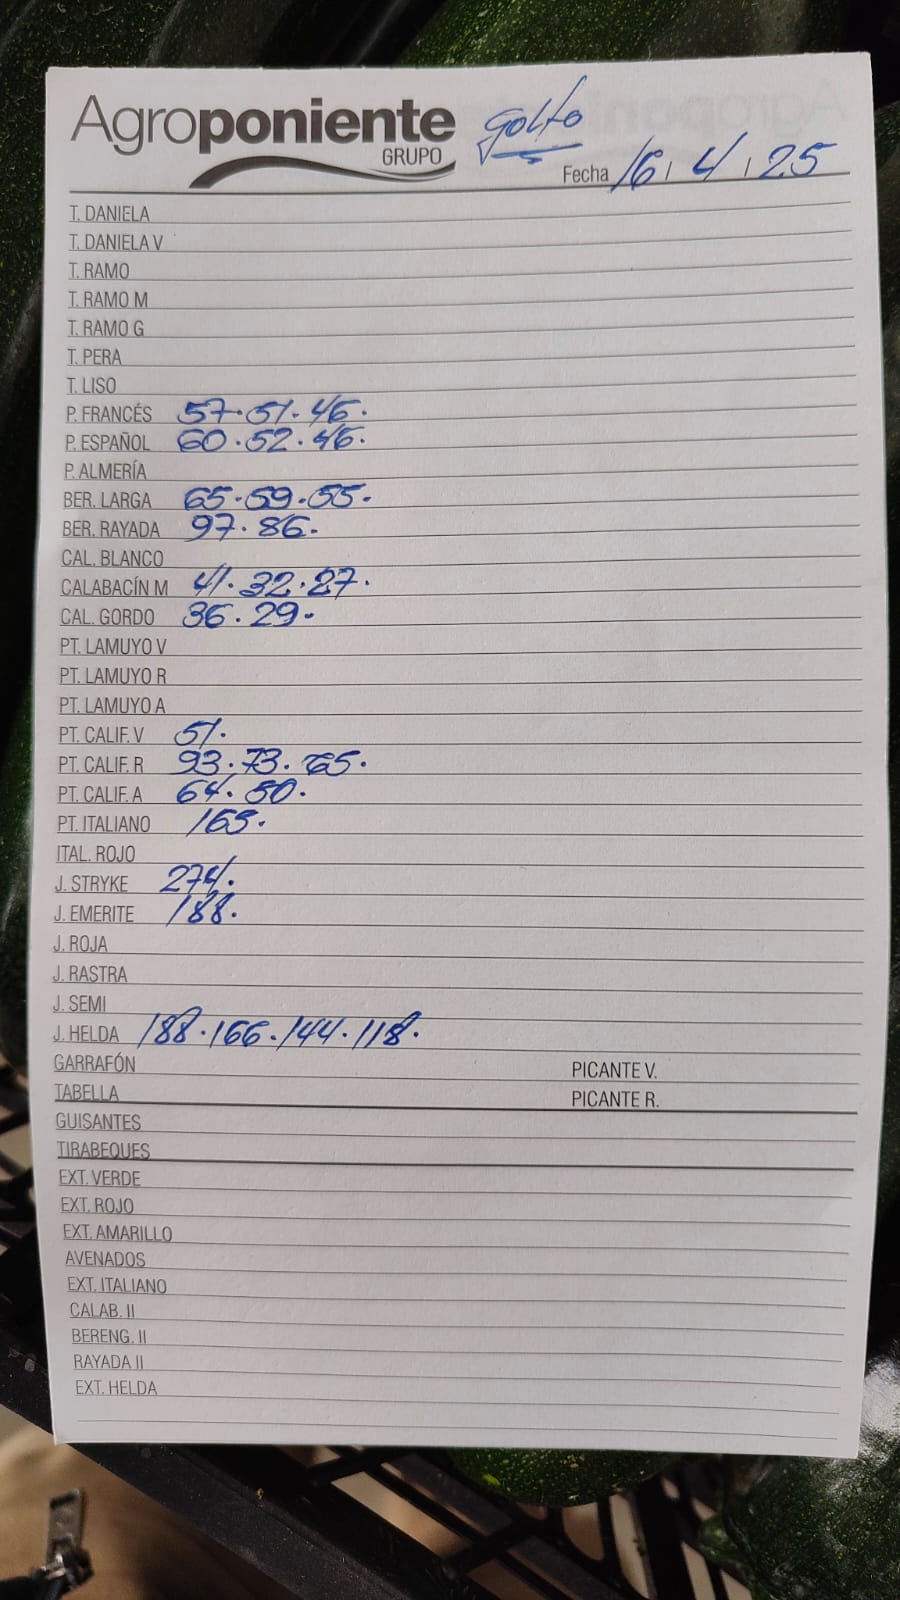 Agroponiente
GRUPO
Golfo
Fecha 16 / 4 / 25
T. DANIELA
T. DANIELA V
T. RAMO
T. RAMO M
T. RAMO G
T. PERA
T. LISO
P. FRANCÉS 57. 51. 46.
P. ESPAÑOL 60. 52. 46.
P. ALMERÍA
BER. LARGA 65. 59. 55.
BER. RAYADA 97. 86.
CAL. BLANCO
CALABACÍN M 41. 32. 27.
CAL. GORDO 36. 29.
PT. LAMUYO V
PT. LAMUYO R
PT. LAMUYO A
PT. CALIF. V 51.
PT. CALIF. R 93. 73. 65.
PT. CALIF. A 64. 50.
PT. ITALIANO 165.
ITAL. ROJO
J. STRYKE 274.
J. EMERITE 188.
J. ROJA
J. RASTRA
J. SEMI
J. HELDA 188. 166. 144. 118.
GARRAFÓN PICANTE V.
TABELLA PICANTE R.
GUISANTES
TIRABEQUES
EXT. VERDE
EXT. ROJO
EXT. AMARILLO
AVENADOS
EXT. ITALIANO
CALAB. II
BERENG. II
RAYADA II
EXT. HELDA